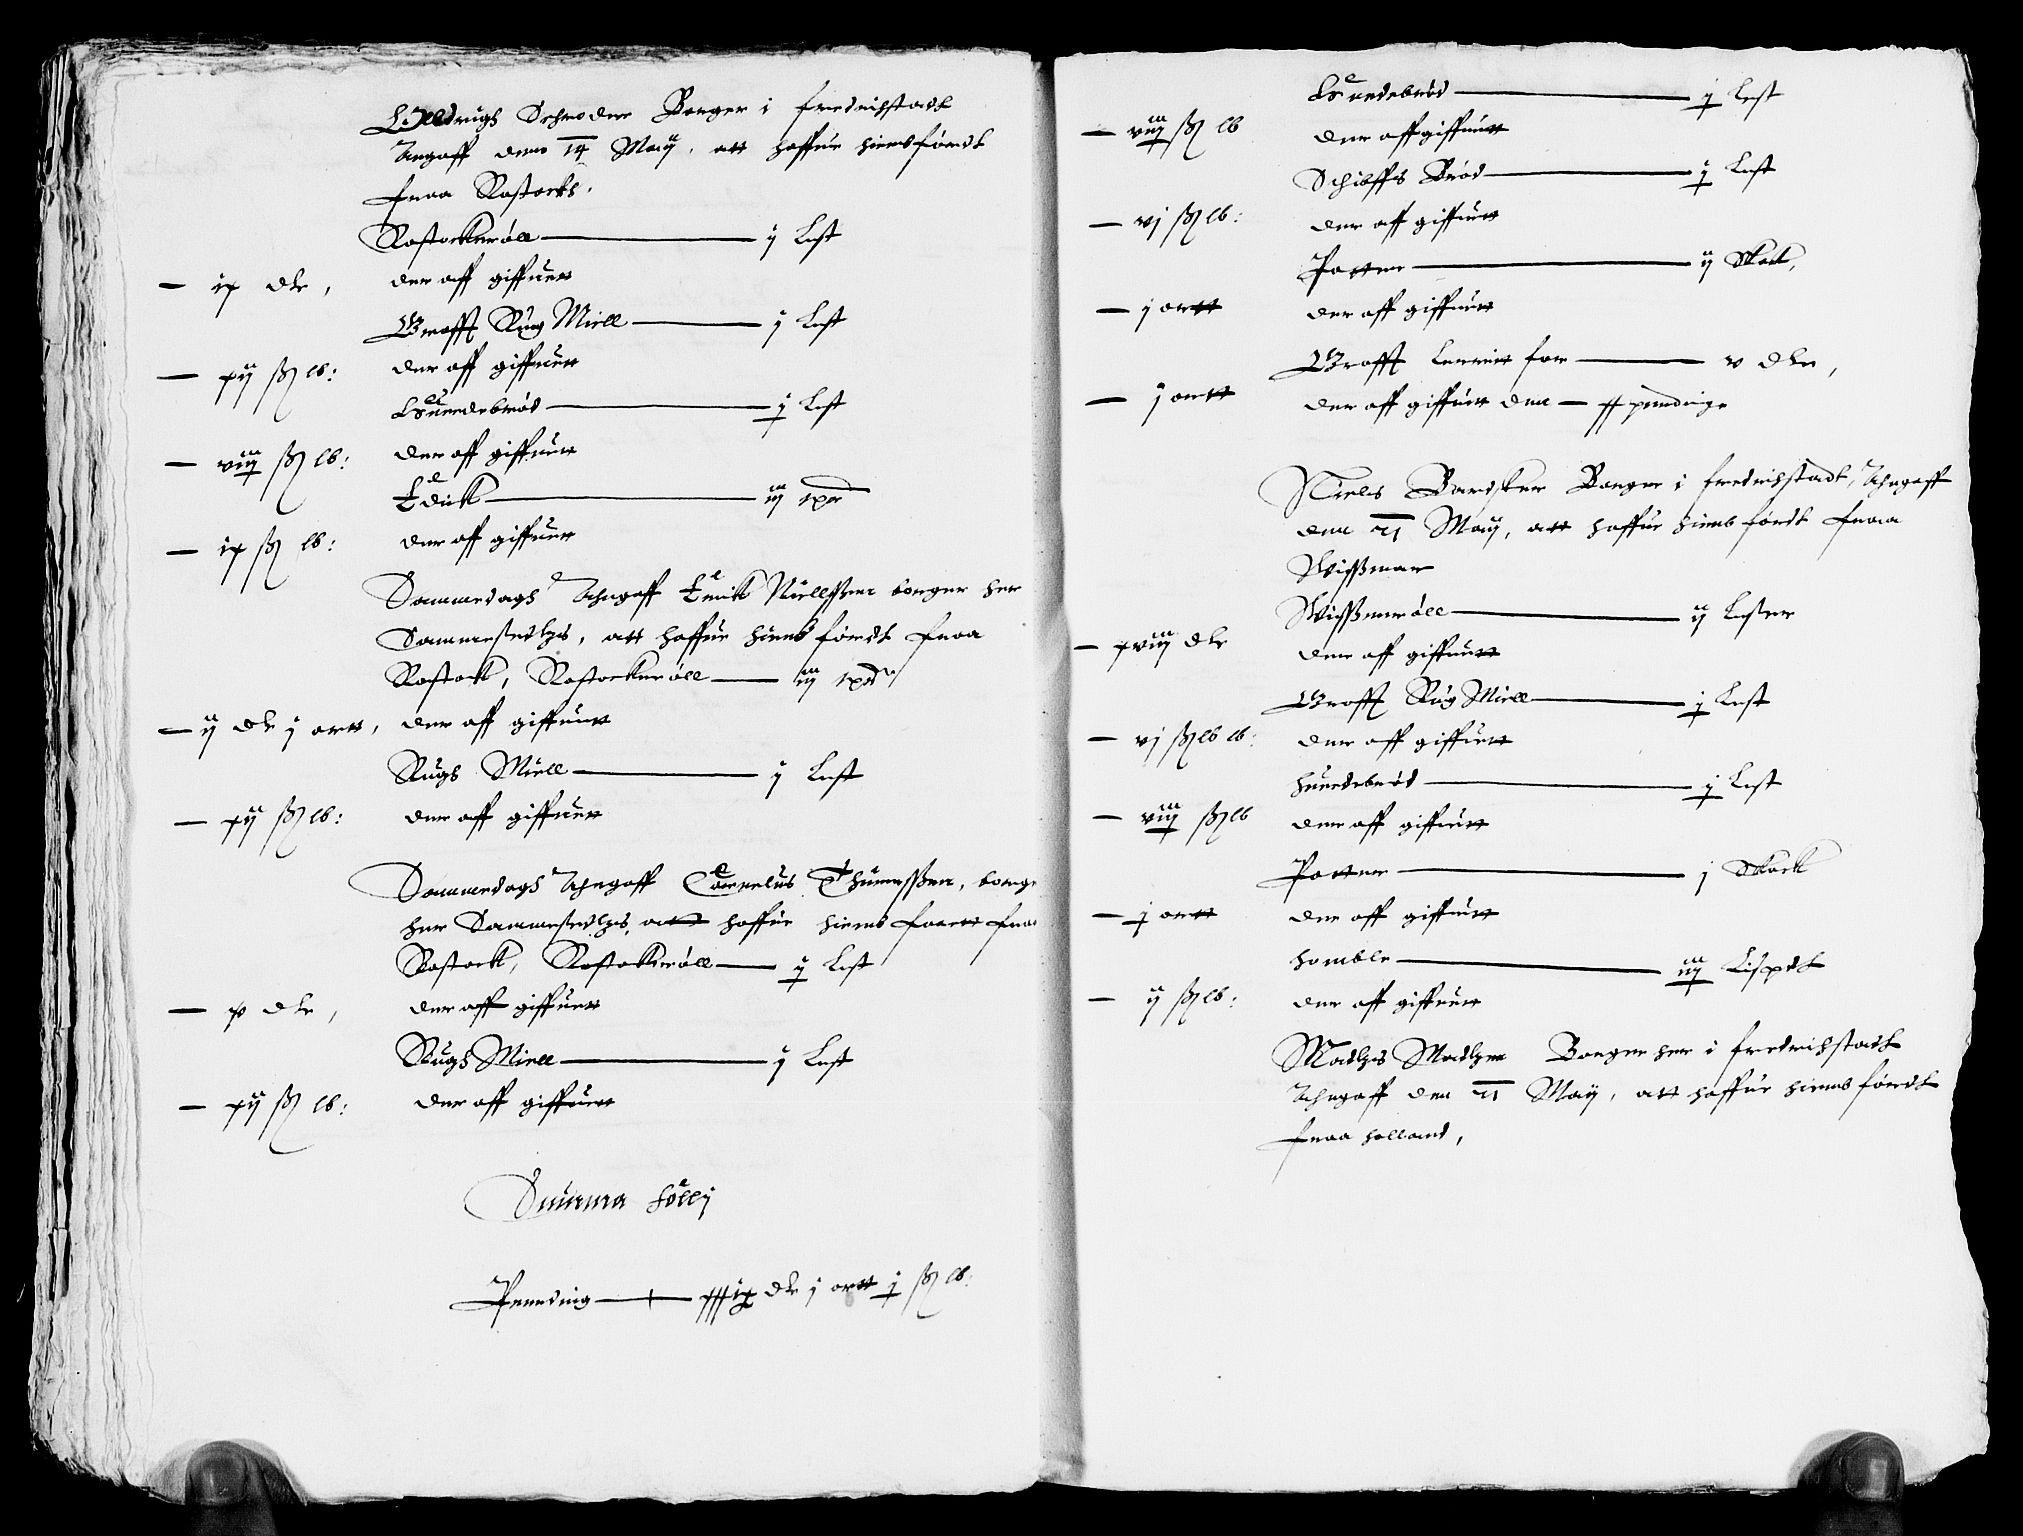 Wlldrigh Schroder Borger i fredrichstadt
Angaff denn 14 Maÿ, att haffue hiembførdt
fraa Rostockh.
Rostockerøll — j Lest
— ix dlr, der aff giffuen
Grofft Rug Miell — j Lest
— xij ß lb: der aff giffuen
Huedebrød — j Lest
— viij ß lb: der aff giffuen
Edick — iij tdr
— ix ß lb: der aff giffuen
Sammedags Angaff Erick Niellssen borger her
Sammestedtz, att haffue hiembførdt fraa
Rostock, Rostockerøll — iij tdr
— ij dlr j ortt, der aff giffuen
Rugh Miell — j Lest
— xij ß lb: der aff giffuen
Sammedags Angaff Cornelius Thuessen, borge
her Sammestedtz, att haffue hiemb faarett fraa
Rostock, Rostockerøll — j Lest
— x dlr, der aff giffuen
Rugh Miell — j Lest
— xij ß lb: der aff giffuen
Summa følly
Pending — xxxix dlr j ortt j ß lb:
Huedebrød — j Lest
— viij ß lb der aff giffuett
Schibffs Brød — j Lest
— vj ß lb: der aff giffuett
Potter — ij Skock,
— j ortt der aff giffuett
Grofft lerrit for — v dlr,
— j ortt der aff giffuett den — xx pendinge
Niels Bardsker Borger i fredrichstadt, Angaff
den 21 Maÿ, att haffue hiembførdt fraa
Wissmar
Wissmerøll — ij Lester
— xviij dlr der aff giffuett
Grofft Rug Miell — j Lest
— vj ß lb: der aff giffuett
Huedebrød — j Lest
— viij ß lb der aff giffuett
Potter — j Skock
— j ortt der aff giffuett
Homble — iiij Lispdt
— ij ß lb: der aff giffuett
Madtzs Madtzen Borger her i fredrichstadt
Angaff den 21 Maÿ, att haffue hiembførdt
fraa Holland,